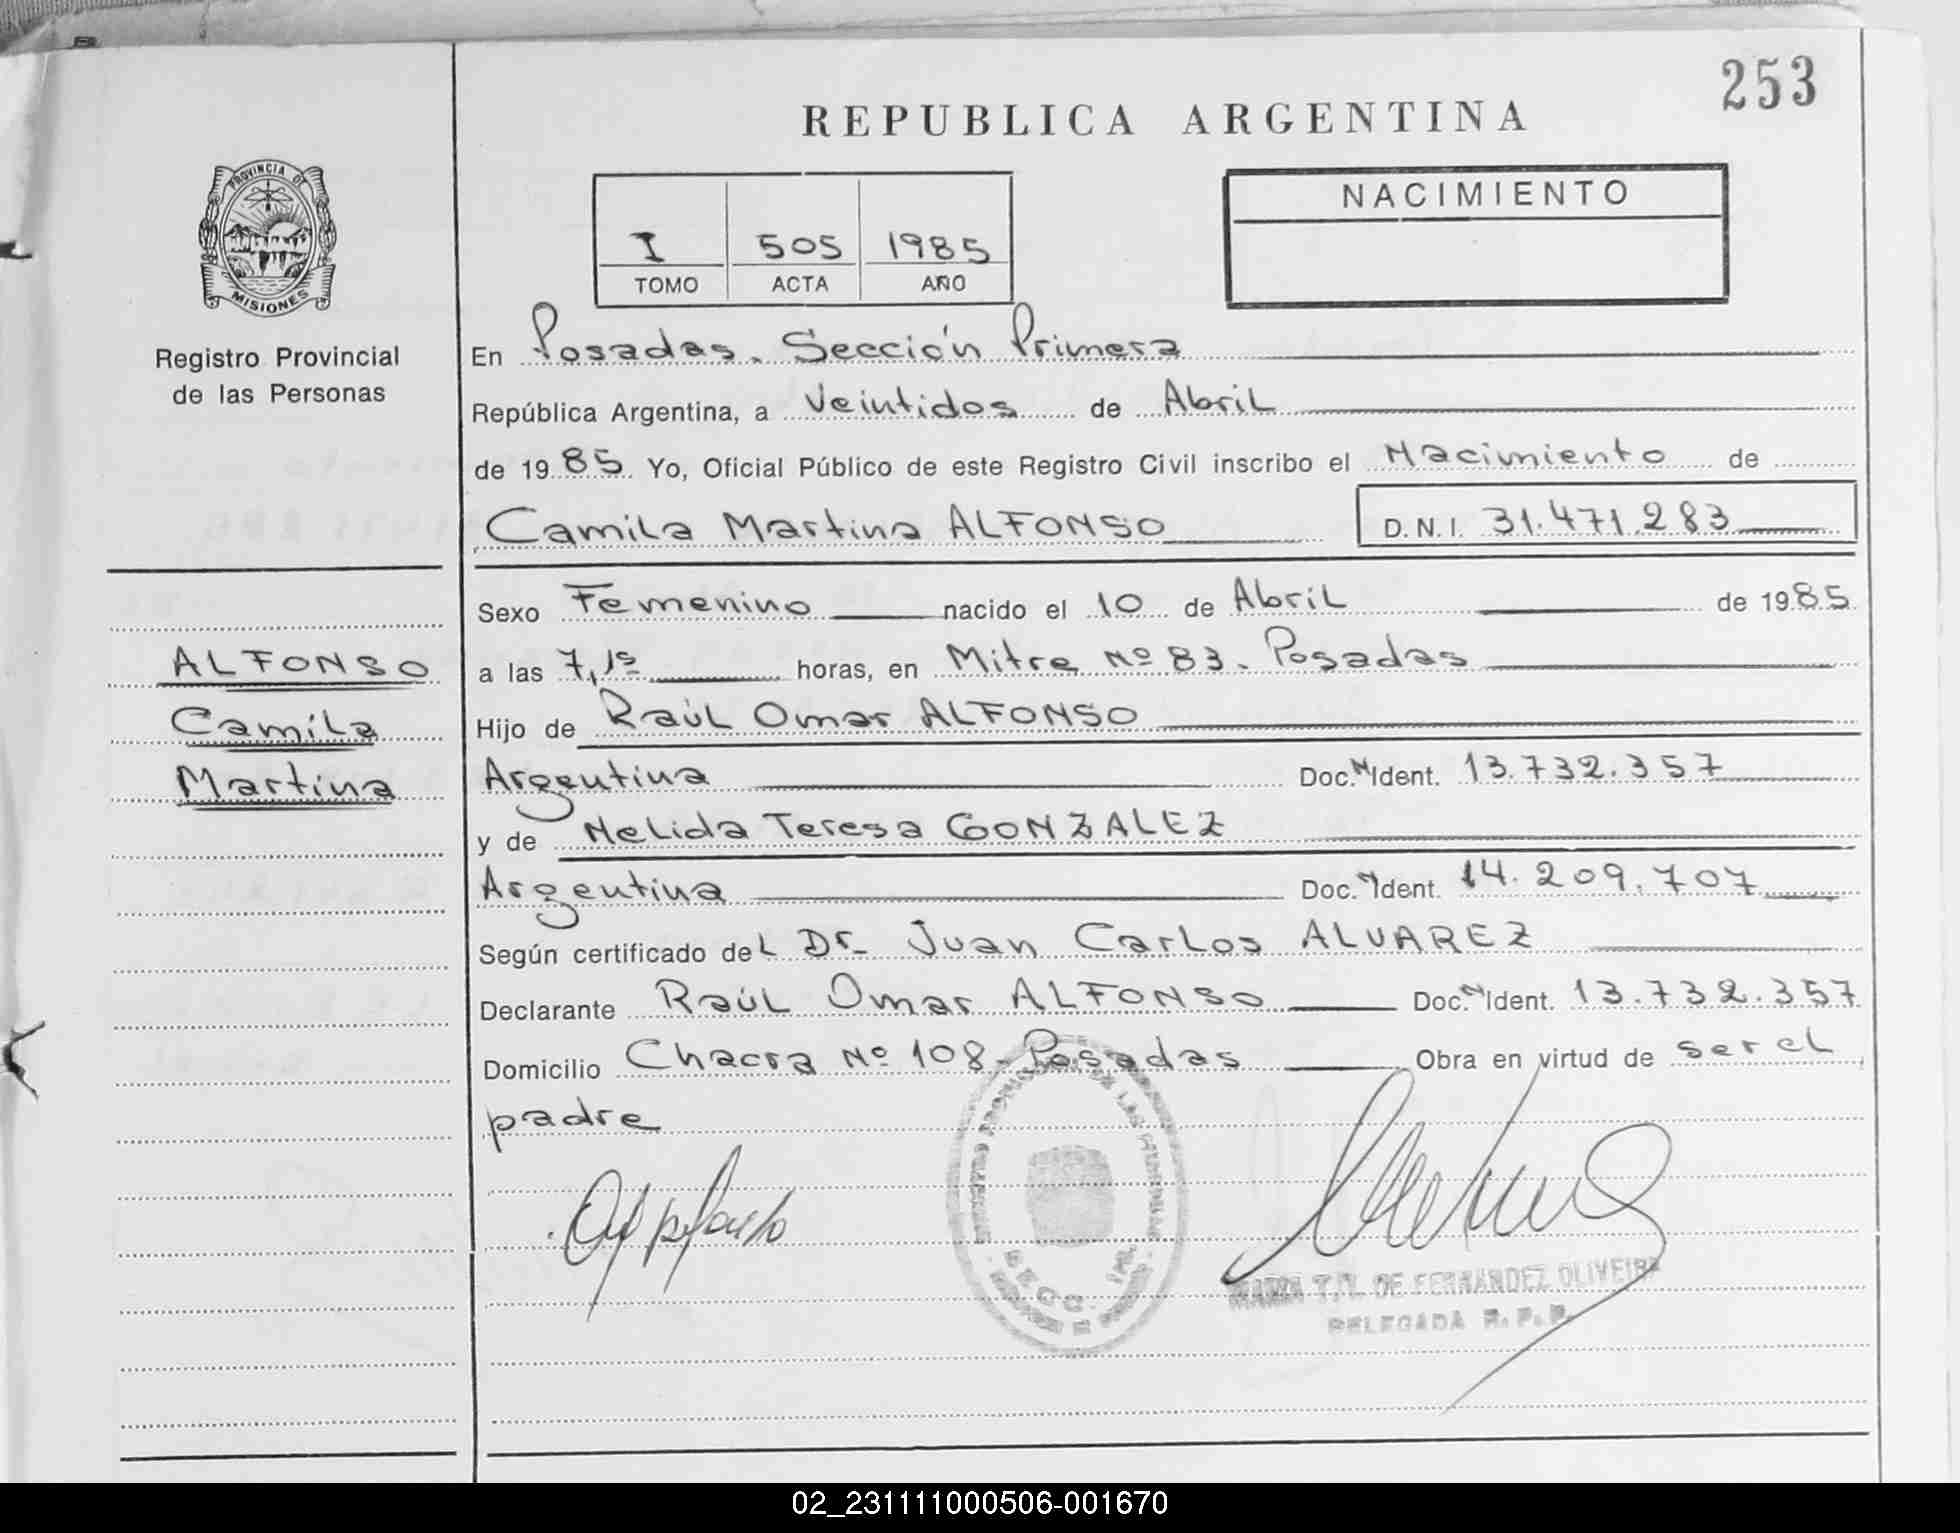 253
REPUBLICA ARGENTINA
PROVINCIA DE
MISIONES
Registro Provincial
de las Personas
I 505 1985
TOMO ACTA AÑO
NACIMIENTO
En Posadas. Sección Primera
República Argentina, a Veintidos de Abril
de 1985. Yo, Oficial Público de este Registro Civil inscribo el Nacimiento de
Camila Martina ALFONSO D.N.I. 31.471.283
Sexo Femenino nacido el 10 de Abril de 1985
a las 7,15 horas, en Mitre Nº 83. Posadas
Hijo de Raúl Omar ALFONSO
Argentina Doc. N Ident. 13.732.357
y de Nelida Teresa GONZALEZ
Argentina Doc. N Ident. 14.209.707
Según certificado del Dr. Juan Carlos ALVAREZ
Declarante Raúl Omar ALFONSO Doc. N Ident. 13.732.357
Domicilio Chacra Nº 108. Posadas Obra en virtud de ser el
padre
ALFONSO
Camila
Martina
DE LAS
SECC. 1RA.
DE FERNANDEZ OLIVEIRA
DELEGADA R. P. P.
02_231111000506-001670